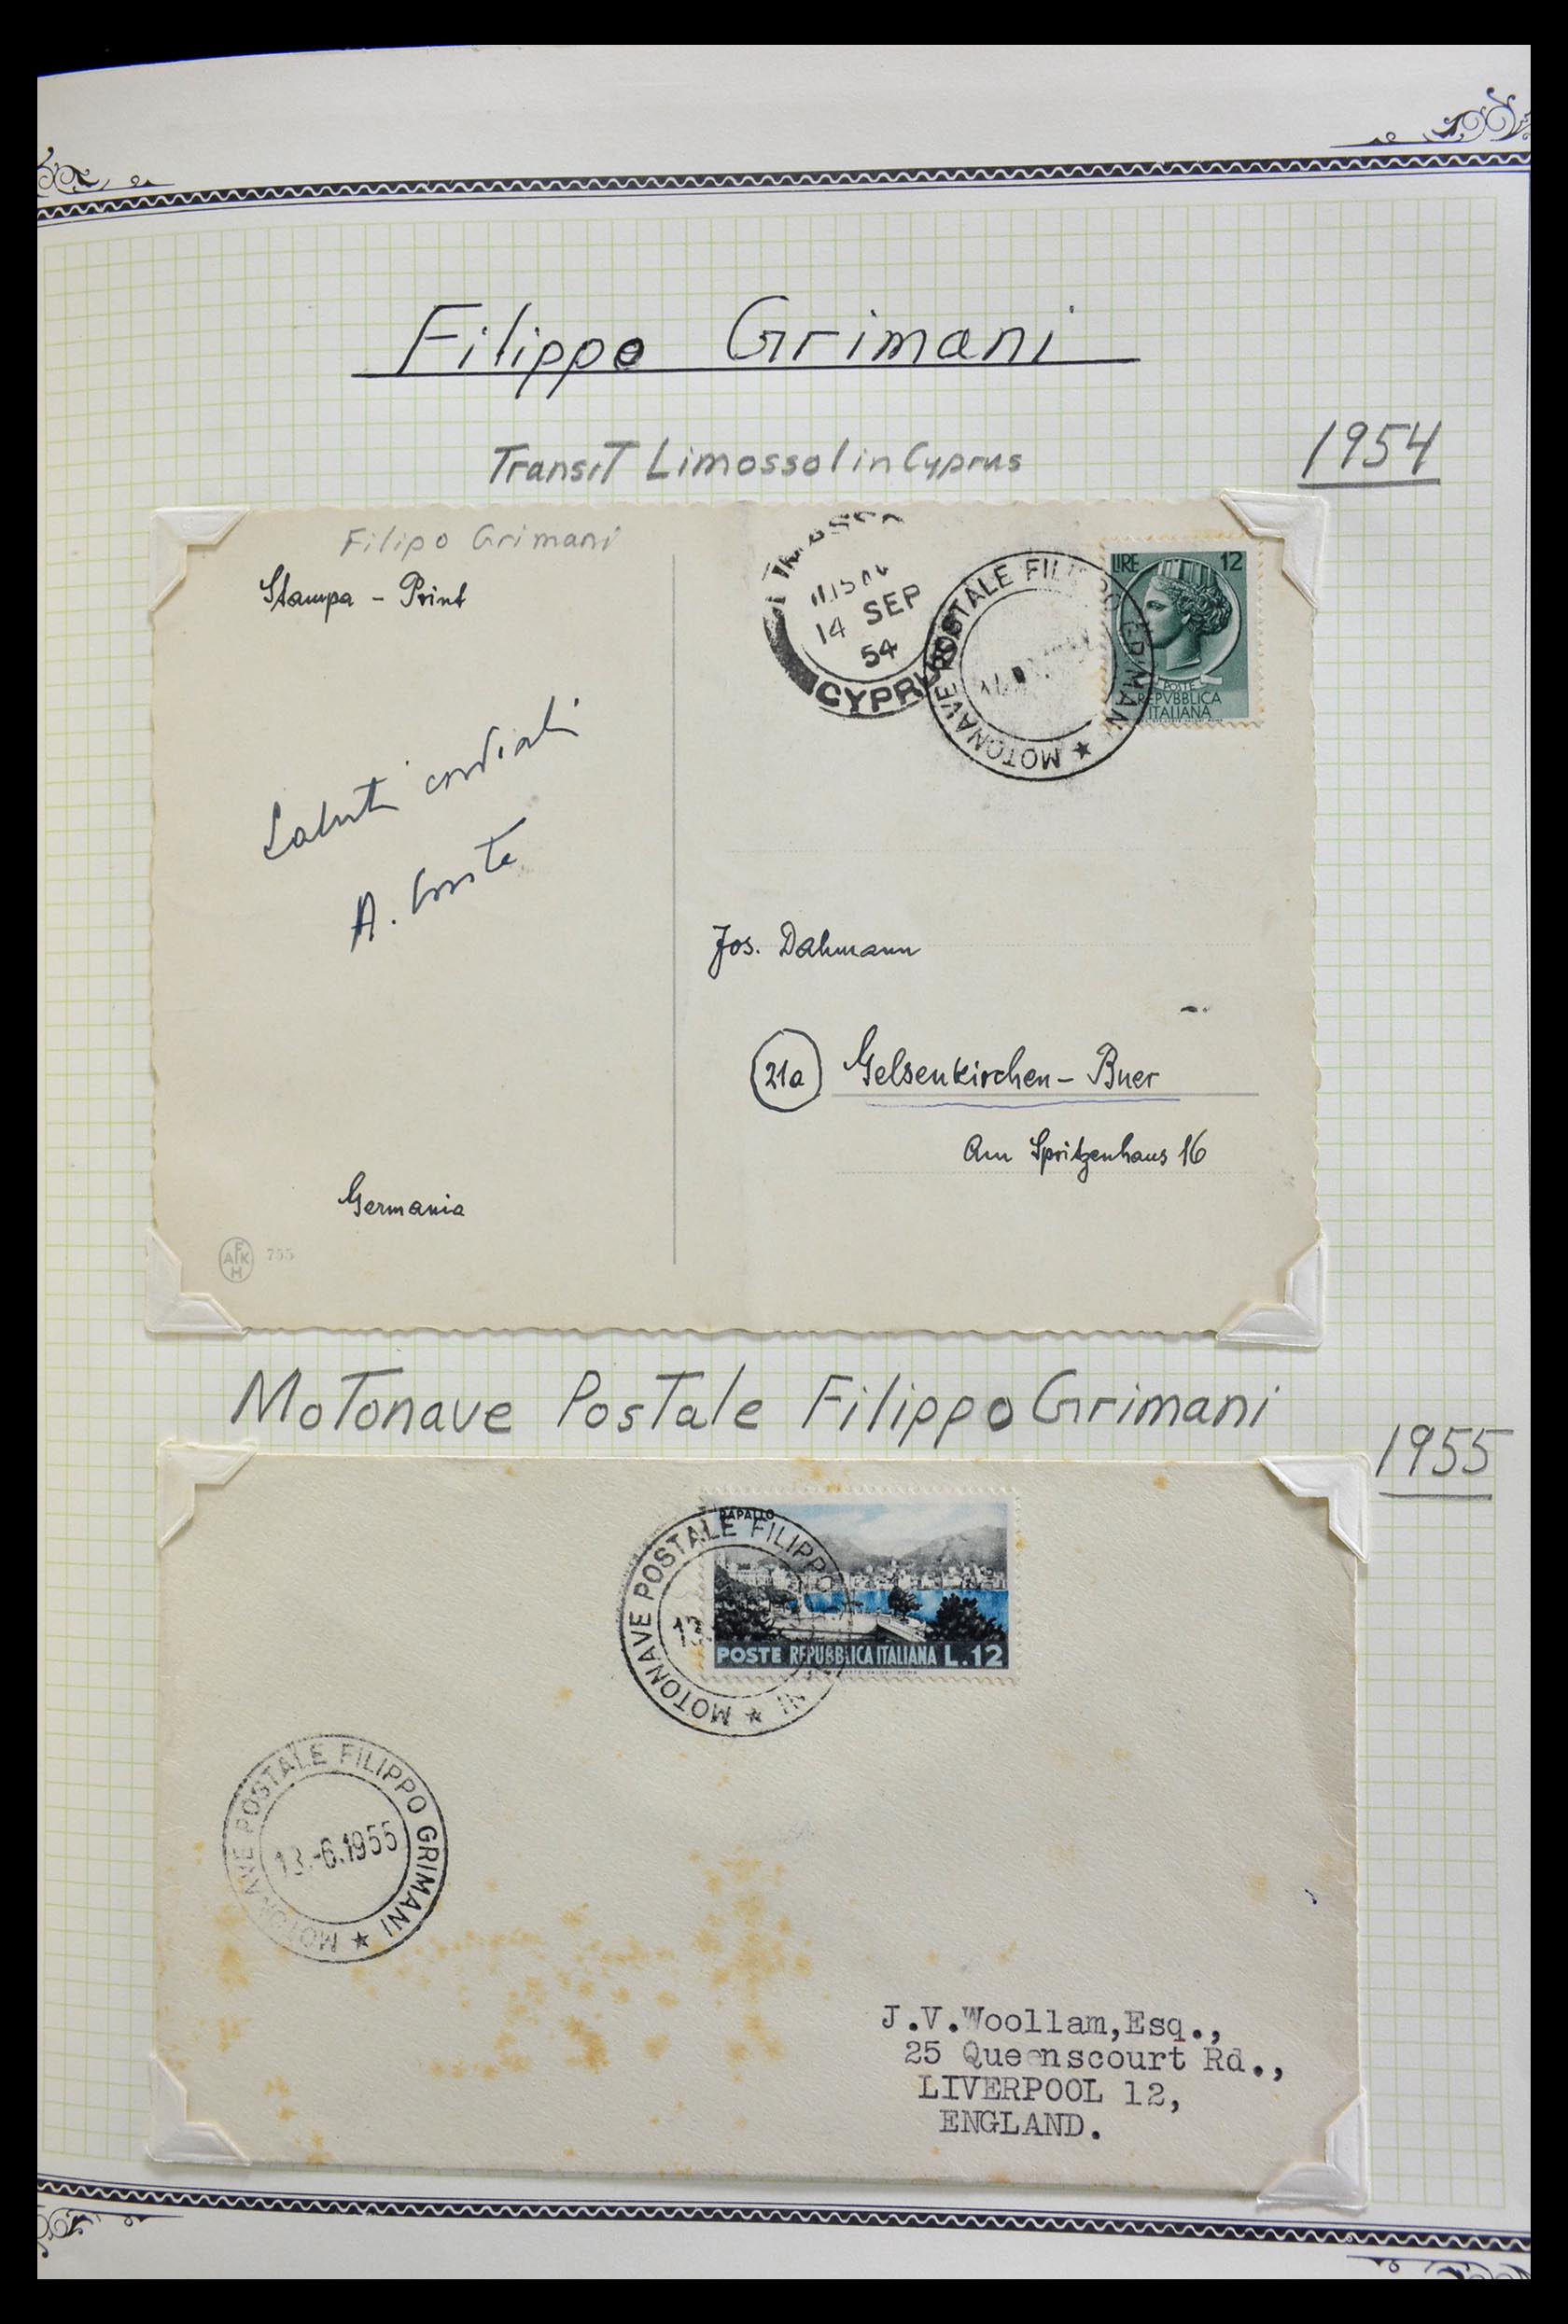 Filippo Grimani
Transit Limossol in Cyprus
1954
Filipo Grimani
Stampa - Print
11.15 AM
14 SEP
54
CYPRUS
MOTONAVE POSTALE FILIPPO GRIMANI ★
LIRE 12
POSTE
REPVBBLICA
ITALIANA
Saluti cordiali
A.
Jos. Dahmann
21a Gelsenkirchen - Buer
Am Spritzenhaus 16
Germania
AFKH 755
Motonave Postale Filippo Grimani
1955
RAPALLO
POSTE REPUBBLICA ITALIANA L.12
MOTONAVE POSTALE FILIPPO GRIMANI ★
13
MOTONAVE POSTALE FILIPPO GRIMANI ★
13.-6.1955
J.V.Woollam,Esq.,
25 Queenscourt Rd.,
LIVERPOOL 12,
ENGLAND.